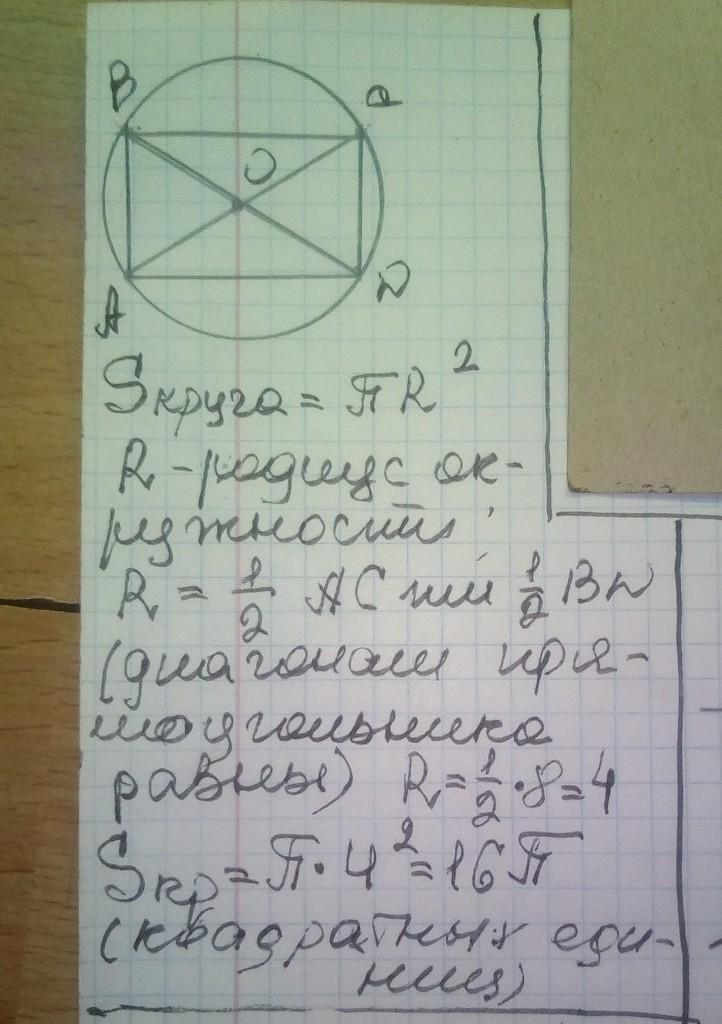 B
O
A
D
Sкруга = πR²
R - радиус ок-
ружности;
R = 1/2 AC или 1/2 BD
(диагонали пря-
моугольника
равны) R = 1/2 · 8 = 4
Sкр = π · 4² = 16π
(квадратных еди-
ниц)